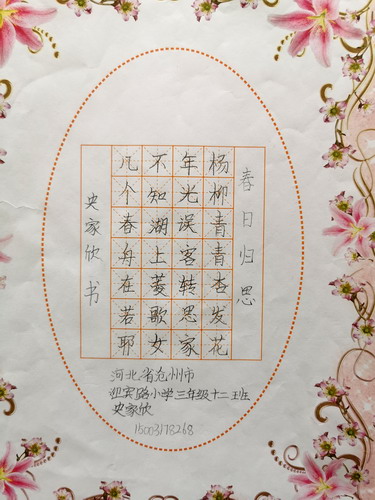 春日归思
杨柳青青杏发花
年光误客转思家
不知湖上菱歌女
几个春舟在若耶
史家欣书
河北省沧州市
迎宾路小学三年级十二班
史家欣
15003178268